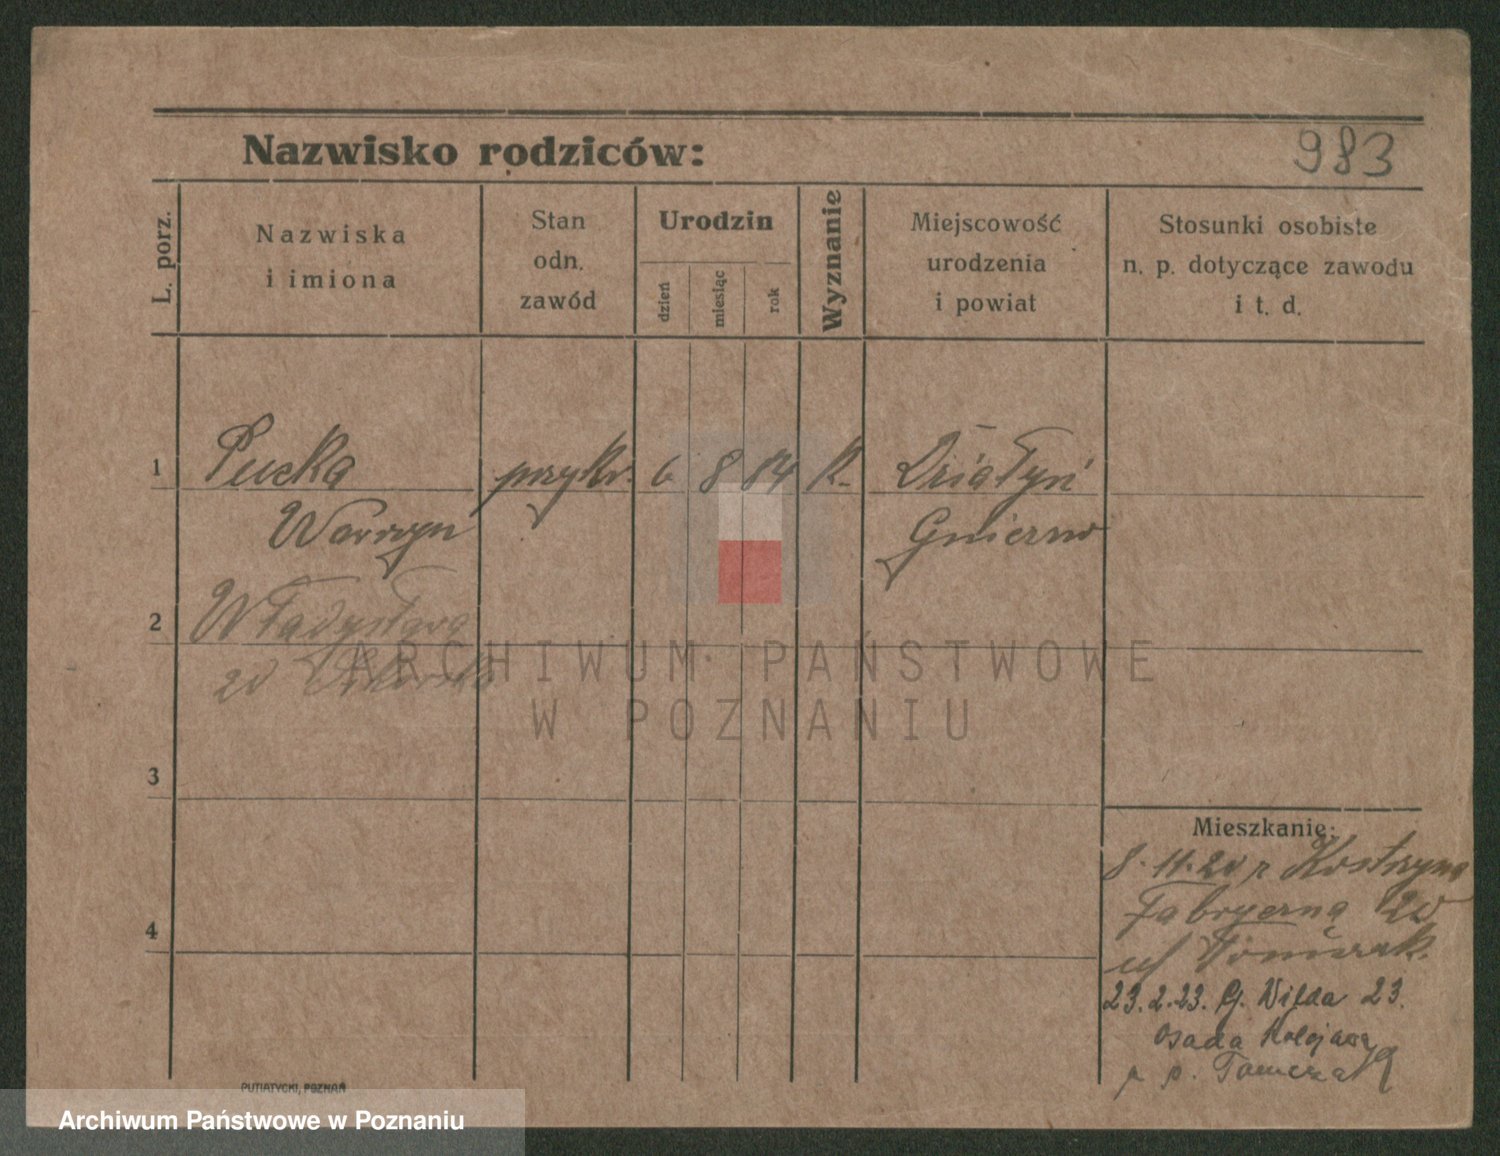 Nazwisko rodziców:
983
L. porz.
Nazwiska
i imiona
Stan
odn.
zawód
Urodzin
dzień
miesiąc
rok
Wyznanie
Miejscowość
urodzenia
i powiat
Stosunki osobiste
n. p. dotyczące zawodu
i t. d.
1
Pucka
6 8 84 K.
Działyń
Wawrzyn
Gniezno
2
Władysława
zd
3
4
Mieszkanie:
8.11.20 z Kostrzyna
Fabryczna 20
23.2.23. G. Wilda 23.
Osada Kolejowa
p. p. Tomczak
PUTIATYCKI, POZNAŃ
ARCHIWUM PAŃSTWOWE
W POZNANIU
Archiwum Państwowe w Poznaniu